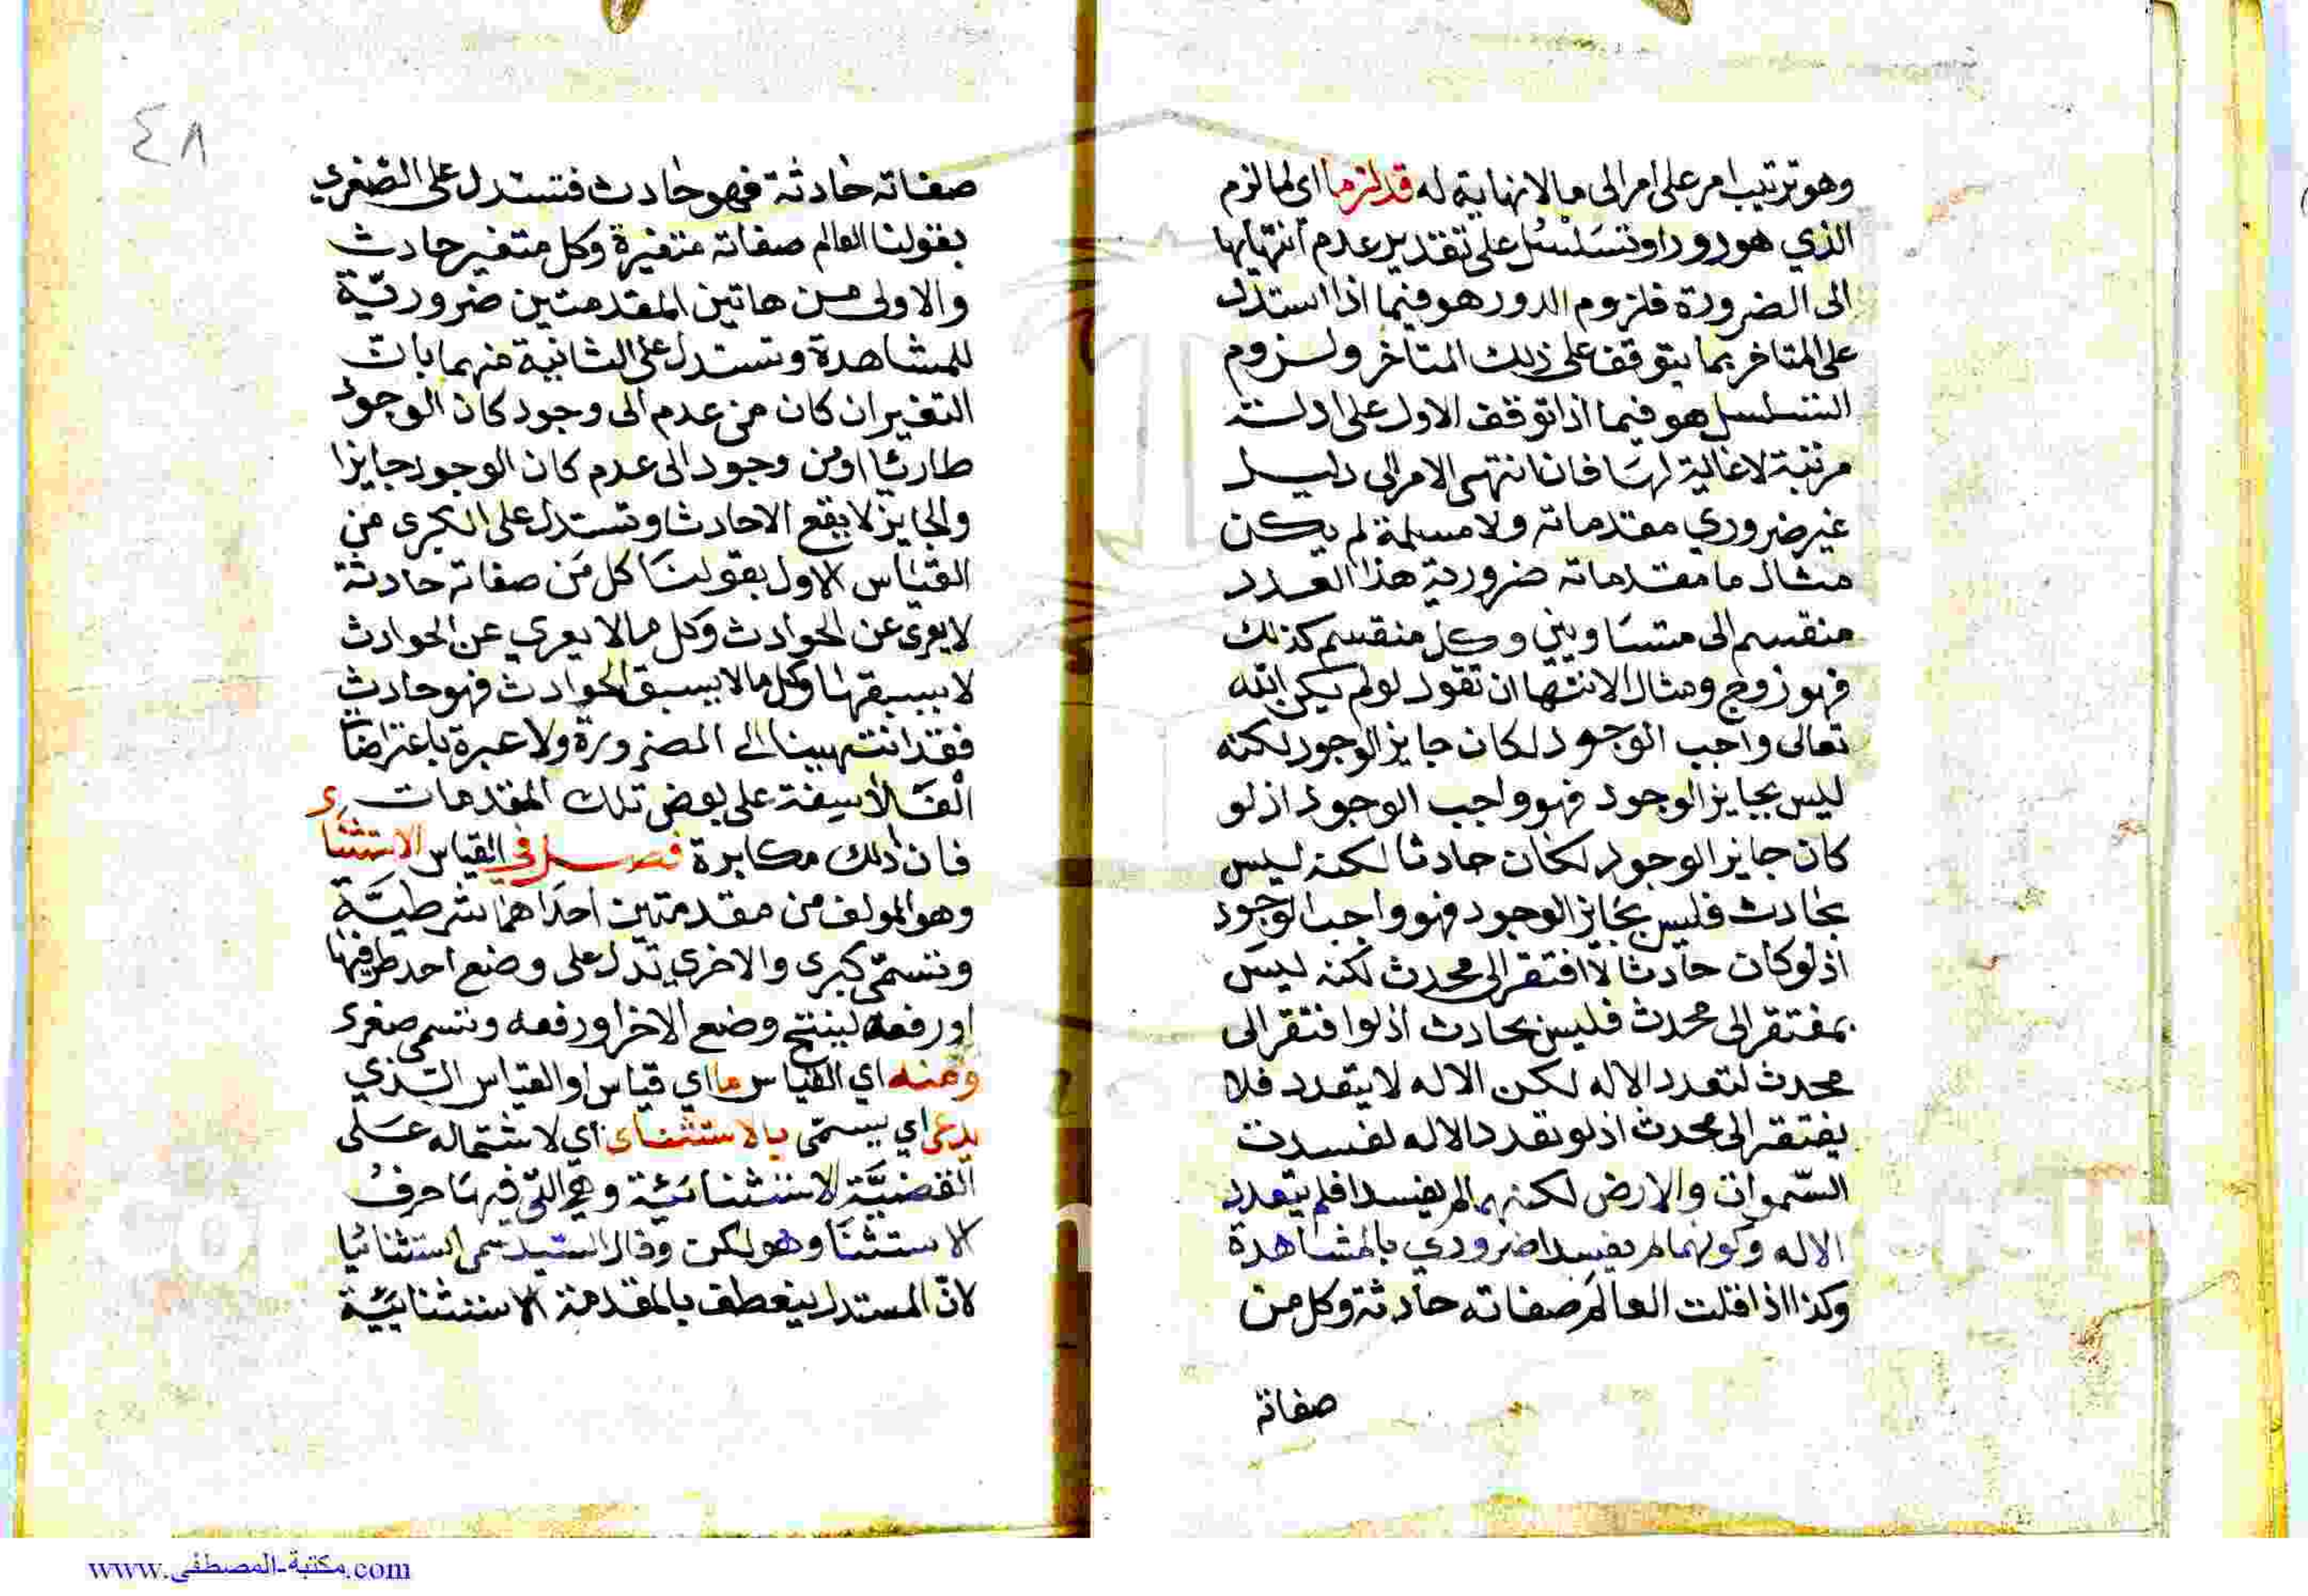 وهو ترتيب امر على امر الى ما لا نهاية له قد لزما اي لما لزم
الذي هو دور او تسلسل على تقدير عدم انتهايها
الى الضرورة فلزوم الدور هو فيما اذا استدل
على المتاخر بما يتوقف على ذلك المتاخر ولزوم
التسلسل هو فيما اذا توقف الاول على ادلة
مرتبة لا غاية لها فان انتهى الامر الى دليل
غير ضروري مقدماته ولا مسلمة لم يكن
مثال ما مقدماته ضرورية هذا العدد
منقسم الى متساويين وكل منقسم كذلك
فهو زوج ومثال الانتها ان تقول لو لم يكن الله
تعالى واجب الوجود لكان جايز الوجود لكنه
ليس بجايز الوجود فهو واجب الوجود اذ لو
كان جايز الوجود لكان حادثا لكنه ليس
بحادث فليس بجايز الوجود فهو واجب الوجود
اذ لو كان حادثا لافتقر الى محدث لكنه ليس
بمفتقر الى محدث فليس بحادث اذ لو افتقر الى
محدث لتعدد الاله لكن الاله لا يتعدد فلا
يفتقر الى محدث اذ لو تعدد الاله لفسدت
السموات والارض لكنهما لم يفسدا فلم يتعدد
الاله وكونهما لم يفسدا ضروري بالمشاهدة
وكذا اذا قلت العالم صفاته حادثة وكل من
صفاته
٤٨
صفاته حادثة فهو حادث فتستدل على الصغرى
بقولنا العالم صفاته متغيرة وكل متغير حادث
والاولى من هاتين المقدمتين ضرورية
للمشاهدة وتستدل على الثانية منهما بان
التغير ان كان من عدم الى وجود كان الوجود
طارئا او من وجود الى عدم كان الوجود جايزا
والجايز لا يقع الا حادثا وتستدل على الكبرى من
القياس الاول بقولنا كل من صفاته حادثة
لا يعرى عن الحوادث وكل ما لا يعري عن الحوادث
لا يسبقها وكل ما لا يسبق الحوادث فهو حادث
فقد انتهينا الى الضرورة ولا عبرة باعتراض
الفلاسفة على بعض تلك المقدمات
فان ذلك مكابرة فصل في القياس الاستثنائي
وهو المولف من مقدمتين احداهما شرطية
وتسمى كبرى والاخرى تدل على وضع احد طرفيها
او رفعه لينتج وضع الاخر او رفعه وتسمى صغرى
ومنه اي القياس ما اي قياس او القياس الذي
يدعى اي يسمى بالاستثنائى اي لاشتماله على
القضية الاستثنائية وهي التي فيها حرف
الاستثنا وهو لكن وقال السيد سمى استثنائيا
لان المستدل ينعطف بالمقدمة الاستثنايية
www.مكتبة-المصطفى.com